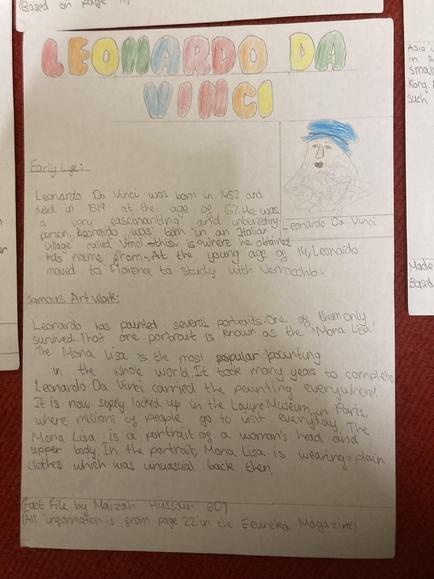 (Based on page 11)
LEONARDO DA
VINCI
Early Life:
Leonardo Da Vinci was born in 1452 and
died in 1519 at the age of 67. He was
a very fascinating and interesting
person. Leonardo was born in an Italian
village called Vinci - this is where he obtained
his name from. At the young age of 14, Leonardo
moved to Florence to study with Verrocchio.
Leonardo Da Vinci
Famous Art Work:
Leonardo has painted several portraits. One of them only
survived. That one portrait is known as the 'Mona Lisa'
The Mona Lisa is the most popular paunting
in the whole world. It took many years to complete
Leonardo Da Vinci carried the paunting everywhere!
It is now safely locked up in the Louvre Museum, in Paris,
where millions of people go to visit everyday. The
Mona Lisa is a portrait of a woman's head and
upper body. In the portrait, Mona Lisa is wearing plain
clothes which was unusual back then.
(Fact File by Maizah Hussain 6O)
(All information is from page 22 in the Eeureka Magazine)
Asia
in
small
Kong
such
Made
Based